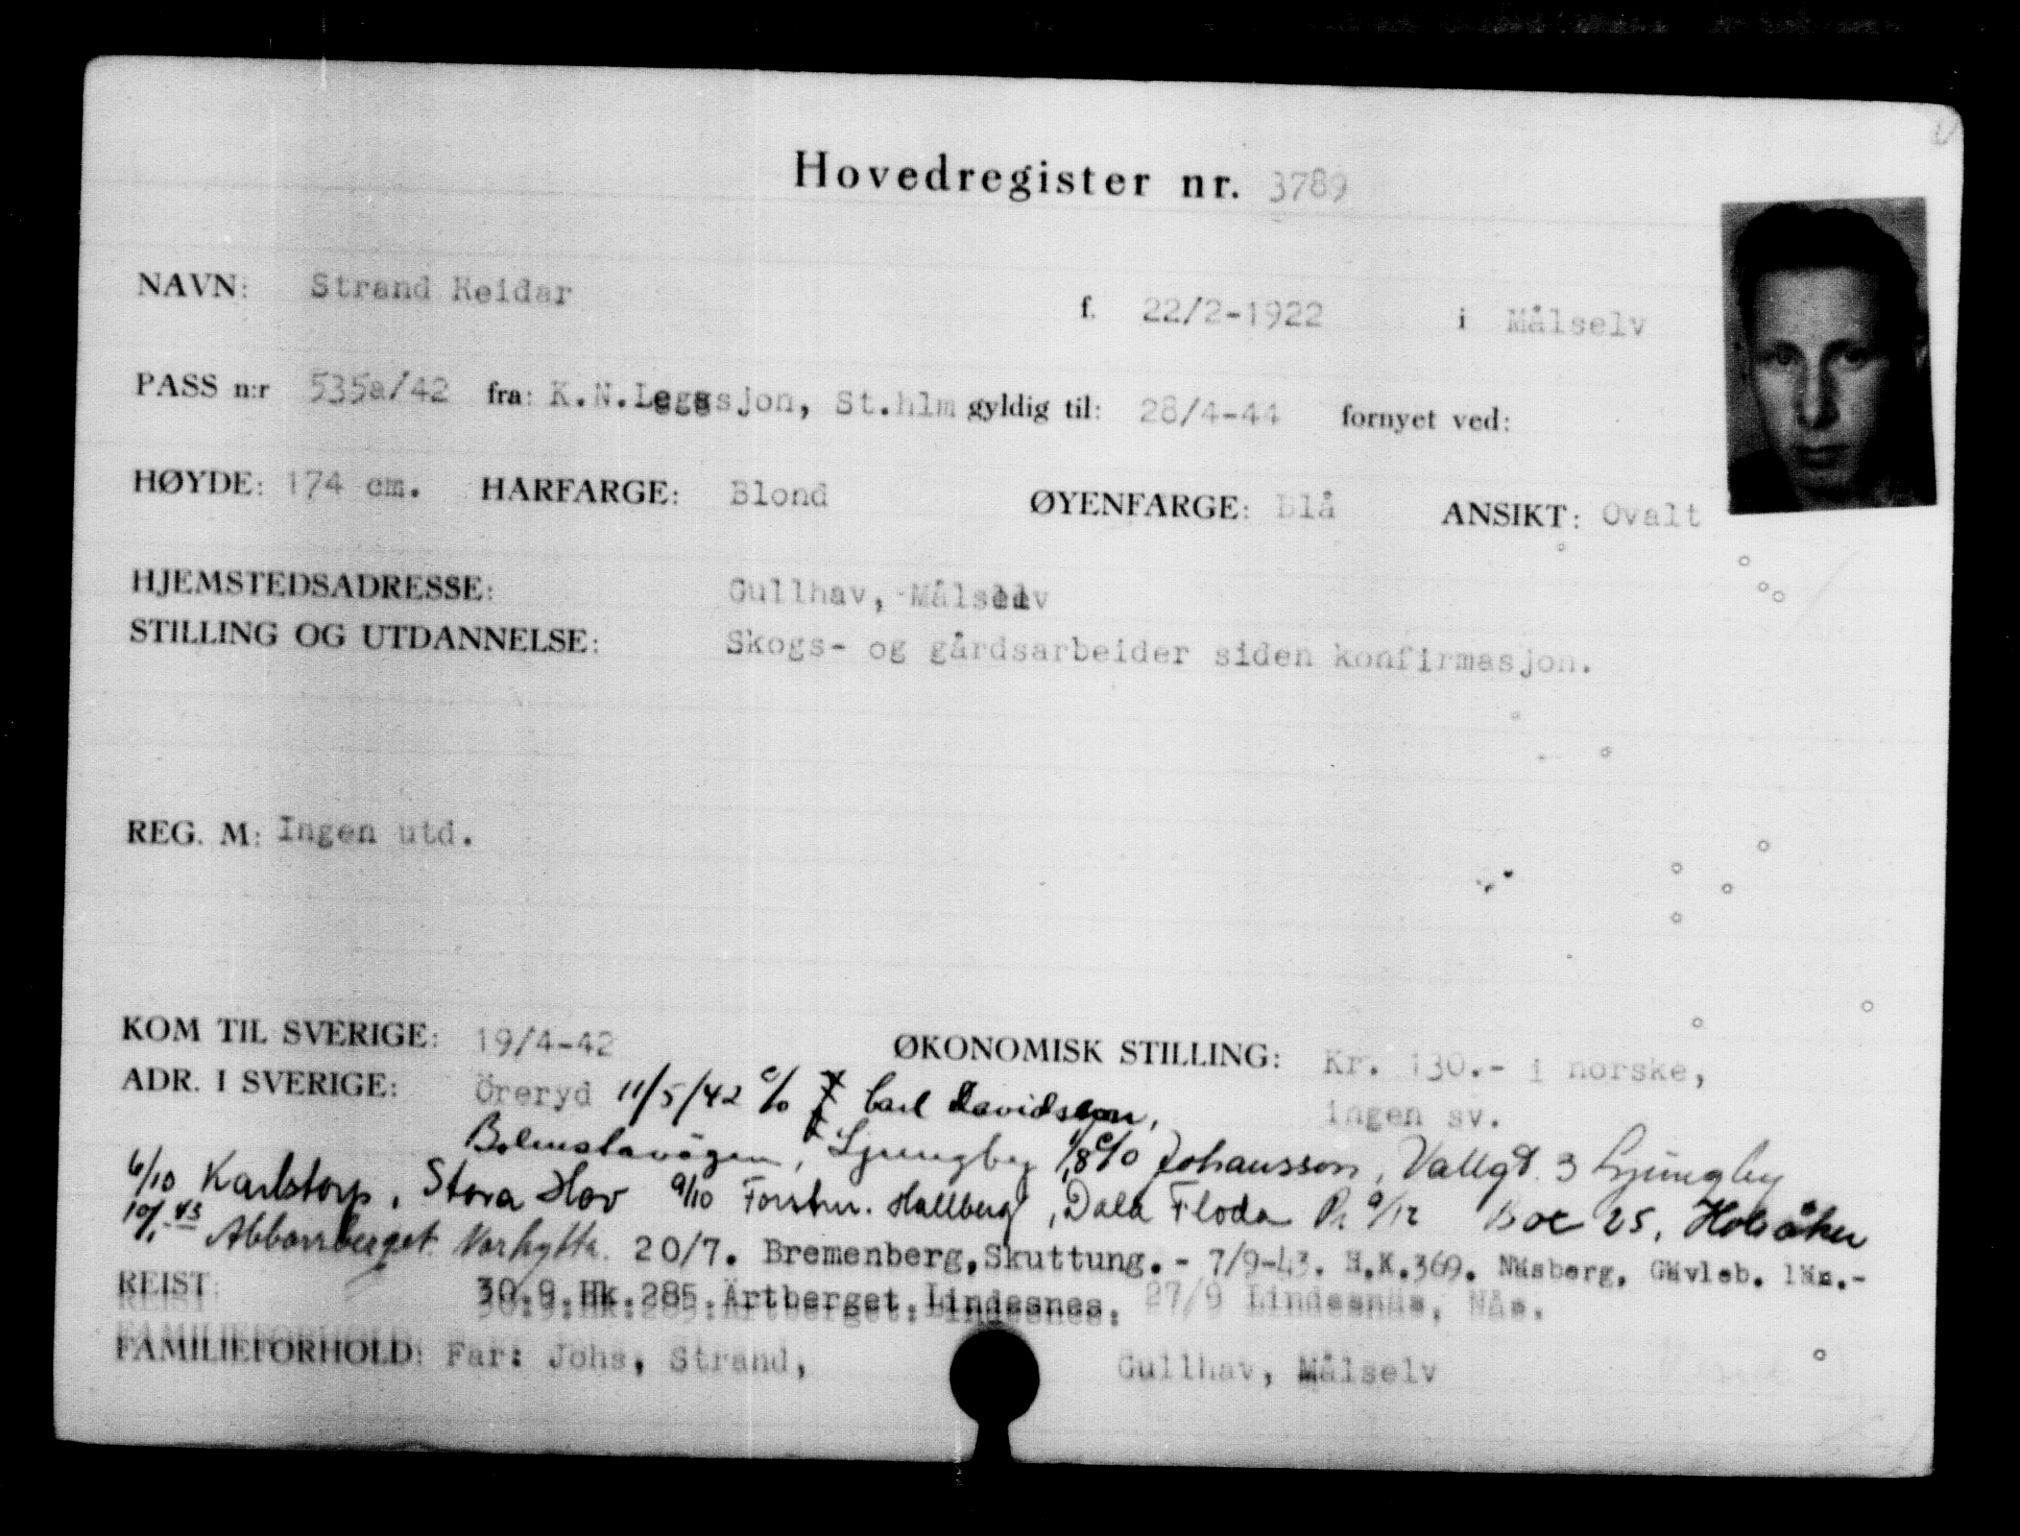 Hovedregister nr. 3789
NAVN: Strand Reidar f. 22/2-1922 i Målselv
PASS n:r 535a/42 fra: K.N.Legasjon, St.hlm gyldig til: 28/4-44 fornyet ved:
HØYDE: 174 cm. HARFARGE: Blond ØYENFARGE: Blå ANSIKT: Ovalt
HJEMSTEDSADRESSE: Gullhav, Målselv
STILLING OG UTDANNELSE: Skogs- og gårdsarbeider siden konfirmasjon.
REG. M: Ingen utd.
KOM TIL SVERIGE: 19/4-42 ØKONOMISK STILLING: Kr. 130.- i norske,
ADR. I SVERIGE: Öreryd 11/5/42 c/o Carl Davidsson, ingen sv.
Bolmstavägen, Ljungby 1/8 c/o Johansson, Vallgt. 3 Ljungby
6/10 Karlstorp, Stora Hov 9/10 Forstm. Hallberg, Dala Floda 9/12 Box 25, Holsåker
10/1-43 Abborrberget. 20/7. Bremenberg, Skuttung. - 7/9-43. H.K.369. Näsberg, Gävleb. län.-
REIST: 30.9.Hk.285.Ärtberget.Lindesnes. 27/9 Lindesnäs, Nås.
FAMILIEFORHOLD: Far: Johs, Strand, Gullhav, Målselv